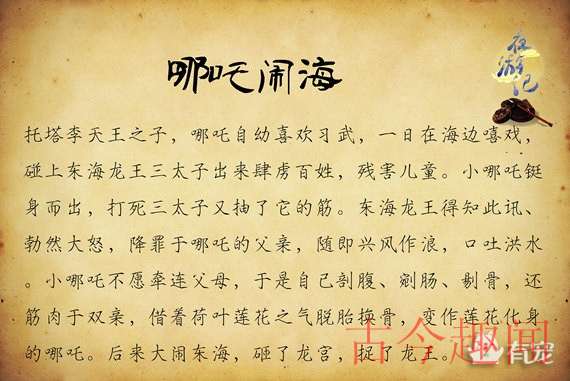 哪吒闹海
夜游记
托塔李天王之子，哪吒自幼喜欢习武，一日在海边嘻戏，
碰上东海龙王三太子出来肆虏百姓，残害儿童。小哪吒铤
身而出，打死三太子又抽了它的筋。东海龙王得知此讯、
勃然大怒，降罪于哪吒的父亲，随即兴风作浪，口吐洪水
。小哪吒不愿牵连父母，于是自己剖腹、剜肠、剔骨，还
筋肉于双亲，借着荷叶莲花之气脱胎换骨，变作莲花化身
的哪吒。后来大闹东海，砸了龙宫，捉了龙王。
古今趣闻
有宠